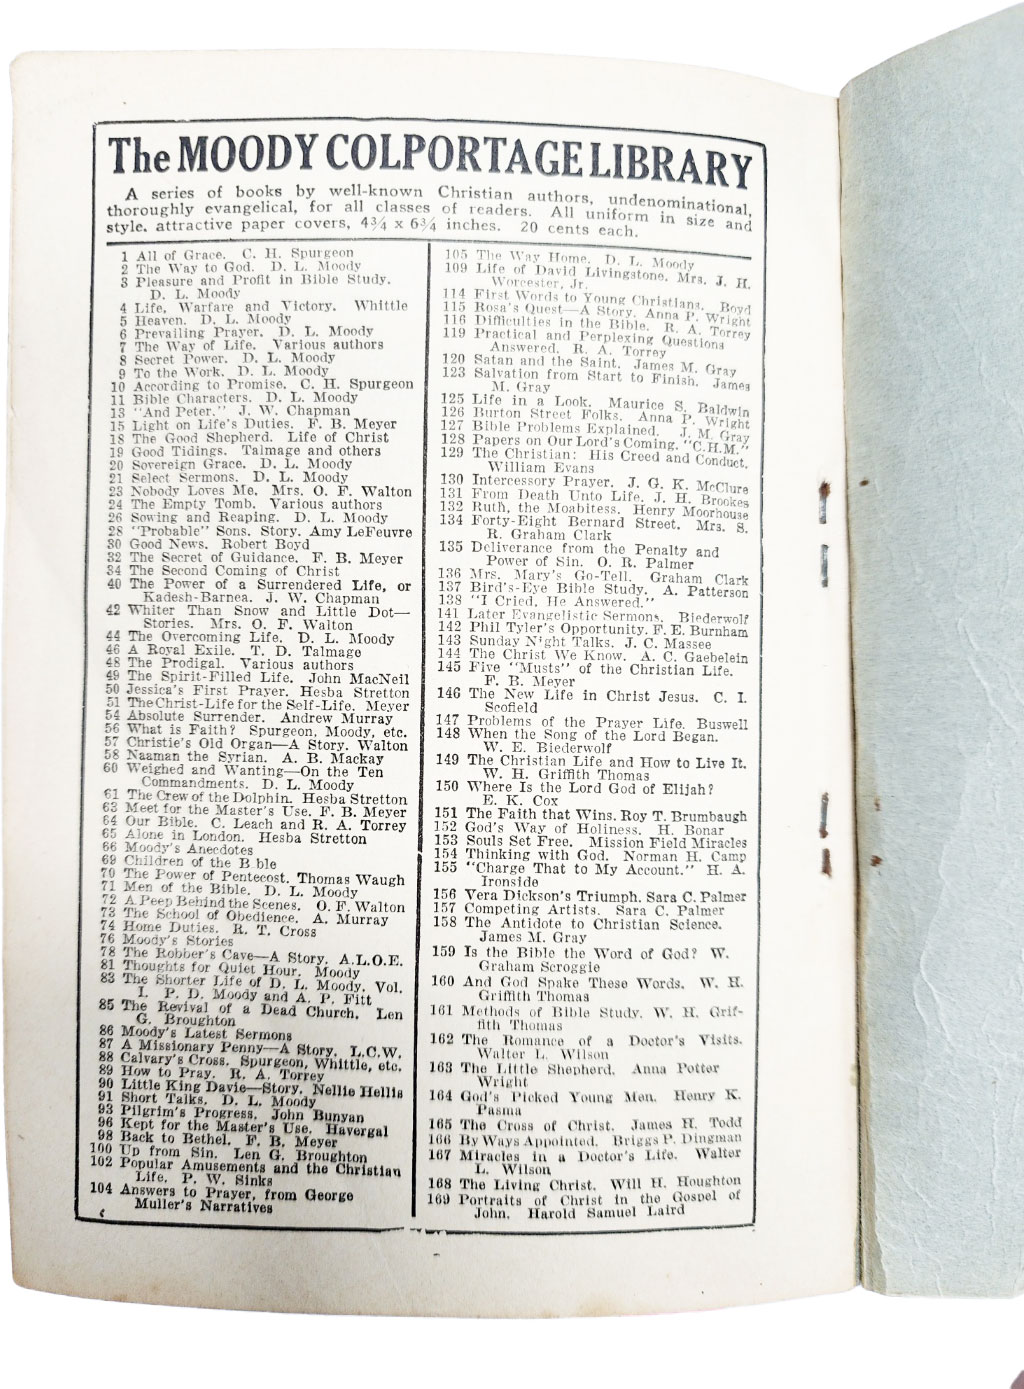 The MOODY COLPORTAGE LIBRARY
A series of books by well-known Christian authors, undenominational,
thoroughly evangelical, for all classes of readers. All uniform in size and
style, attractive paper covers, 4¾ x 6¾ inches. 20 cents each.
1 All of Grace. C. H. Spurgeon
2 The Way to God. D. L. Moody
3 Pleasure and Profit in Bible Study.
D. L. Moody
4 Life, Warfare and Victory. Whittle
5 Heaven. D. L. Moody
6 Prevailing Prayer. D. L. Moody
7 The Way of Life. Various authors
8 Secret Power. D. L. Moody
9 To the Work. D. L. Moody
10 According to Promise. C. H. Spurgeon
11 Bible Characters. D. L. Moody
13 "And Peter." J. W. Chapman
15 Light on Life's Duties. F. B. Meyer
18 The Good Shepherd. Life of Christ
19 Good Tidings. Talmage and others
20 Sovereign Grace. D. L. Moody
21 Select Sermons. D. L. Moody
23 Nobody Loves Me. Mrs. O. F. Walton
24 The Empty Tomb. Various authors
26 Sowing and Reaping. D. L. Moody
28 "Probable" Sons. Story. Amy LeFeuvre
30 Good News. Robert Boyd
32 The Secret of Guidance. F. B. Meyer
34 The Second Coming of Christ
40 The Power of a Surrendered Life, or
Kadesh-Barnea. J. W. Chapman
42 Whiter Than Snow and Little Dot—
Stories. Mrs. O. F. Walton
44 The Overcoming Life. D. L. Moody
46 A Royal Exile. T. D. Talmage
48 The Prodigal. Various authors
49 The Spirit-Filled Life. John MacNeil
50 Jessica's First Prayer. Hesba Stretton
51 The Christ-Life for the Self-Life. Meyer
54 Absolute Surrender. Andrew Murray
56 What is Faith? Spurgeon, Moody, etc.
57 Christie's Old Organ—A Story. Walton
58 Naaman the Syrian. A. B. Mackay
60 Weighed and Wanting—On the Ten
Commandments. D. L. Moody
61 The Crew of the Dolphin. Hesba Stretton
63 Meet for the Master's Use. F. B. Meyer
64 Our Bible. C. Leach and R. A. Torrey
65 Alone in London. Hesba Stretton
66 Moody's Anecdotes
69 Children of the B ble
70 The Power of Pentecost. Thomas Waugh
71 Men of the Bible. D. L. Moody
72 A Peep Behind the Scenes. O. F. Walton
73 The School of Obedience. A. Murray
74 Home Duties. R. T. Cross
76 Moody's Stories
78 The Robber's Cave—A Story. A.L.O.E.
81 Thoughts for Quiet Hour. Moody
83 The Shorter Life of D. L. Moody. Vol.
I. P. D. Moody and A. P. Fitt
85 The Revival of a Dead Church. Len
G. Broughton
86 Moody's Latest Sermons
87 A Missionary Penny—A Story. L.C.W.
88 Calvary's Cross. Spurgeon, Whittle, etc.
89 How to Pray. R. A. Torrey
90 Little King Davie—Story. Nellie Hellis
91 Short Talks. D. L. Moody
93 Pilgrim's Progress. John Bunyan
96 Kept for the Master's Use. Havergal
98 Back to Bethel. F. B. Meyer
100 Up from Sin. Len G. Broughton
102 Popular Amusements and the Christian
Life. P. W. Sinks
104 Answers to Prayer, from George
Muller's Narratives
105 The Way Home. D. L. Moody
109 Life of David Livingstone. Mrs. J. H.
Worcester, Jr.
114 First Words to Young Christians. Boyd
115 Rosa's Quest—A Story. Anna P. Wright
116 Difficulties in the Bible. R. A. Torrey
119 Practical and Perplexing Questions
Answered. R. A. Torrey
120 Satan and the Saint. James M. Gray
123 Salvation from Start to Finish. James
M. Gray
125 Life in a Look. Maurice S. Baldwin
126 Burton Street Folks. Anna P. Wright
127 Bible Problems Explained. J. M. Gray
128 Papers on Our Lord's Coming. "C.H.M."
129 The Christian: His Creed and Conduct.
William Evans
130 Intercessory Prayer. J. G. K. McClure
131 From Death Unto Life. J. H. Brookes
132 Ruth, the Moabitess. Henry Moorhouse
134 Forty-Eight Bernard Street. Mrs. S.
R. Graham Clark
135 Deliverance from the Penalty and
Power of Sin. O. R. Palmer
136 Mrs. Mary's Go-Tell. Graham Clark
137 Bird's-Eye Bible Study. A. Patterson
138 "I Cried, He Answered."
141 Later Evangelistic Sermons. Biederwolf
142 Phil Tyler's Opportunity. F. E. Burnham
143 Sunday Night Talks. J. C. Massee
144 The Christ We Know. A. C. Gaebelein
145 Five "Musts" of the Christian Life.
F. B. Meyer
146 The New Life in Christ Jesus. C. I.
Scofield
147 Problems of the Prayer Life. Buswell
148 When the Song of the Lord Began.
W. E. Biederwolf
149 The Christian Life and How to Live It.
W. H. Griffith Thomas
150 Where Is the Lord God of Elijah?
E. K. Cox
151 The Faith that Wins. Roy T. Brumbaugh
152 God's Way of Holiness. H. Bonar
153 Souls Set Free. Mission Field Miracles
154 Thinking with God. Norman H. Camp
155 "Charge That to My Account." H. A.
Ironside
156 Vera Dickson's Triumph. Sara C. Palmer
157 Competing Artists. Sara C. Palmer
158 The Antidote to Christian Science.
James M. Gray
159 Is the Bible the Word of God? W.
Graham Scroggie
160 And God Spake These Words. W. H.
Griffith Thomas
161 Methods of Bible Study. W. H. Grif-
fith Thomas
162 The Romance of a Doctor's Visits.
Walter L. Wilson
163 The Little Shepherd. Anna Potter
Wright
164 God's Picked Young Men. Henry K.
Pasma
165 The Cross of Christ. James H. Todd
166 By Ways Appointed. Briggs P. Dingman
167 Miracles in a Doctor's Life. Walter
L. Wilson
168 The Living Christ. Will H. Houghton
169 Portraits of Christ in the Gospel of
John. Harold Samuel Laird